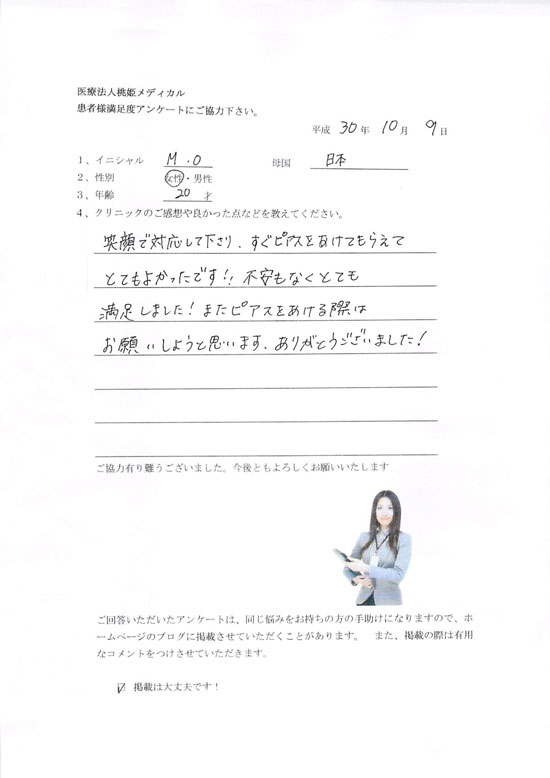 医療法人桃姫メディカル
患者様満足度アンケートにご協力下さい。
平成 30 年 10 月 9 日
1、イニシャル M.O 母国 日本
2、性別 女性・男性
3、年齢 20 才
4、クリニックのご感想や良かった点などを教えてください。
笑顔で対応して下さり、すぐピアスをあけてもらえて
とてもよかったです!! 不安もなくとても
満足しました!またピアスをあける際は
お願いしようと思います、ありがとうございました!
ご協力有り難うございました。今後ともよろしくお願いいたします
ご回答いただいたアンケートは、同じ悩みをお持ちの方の手助けになりますので、ホ
ームページのブログに掲載させていただくことがあります。 また、掲載の際は有用
なコメントをつけさせていただきます。
☑ 掲載は大丈夫です!